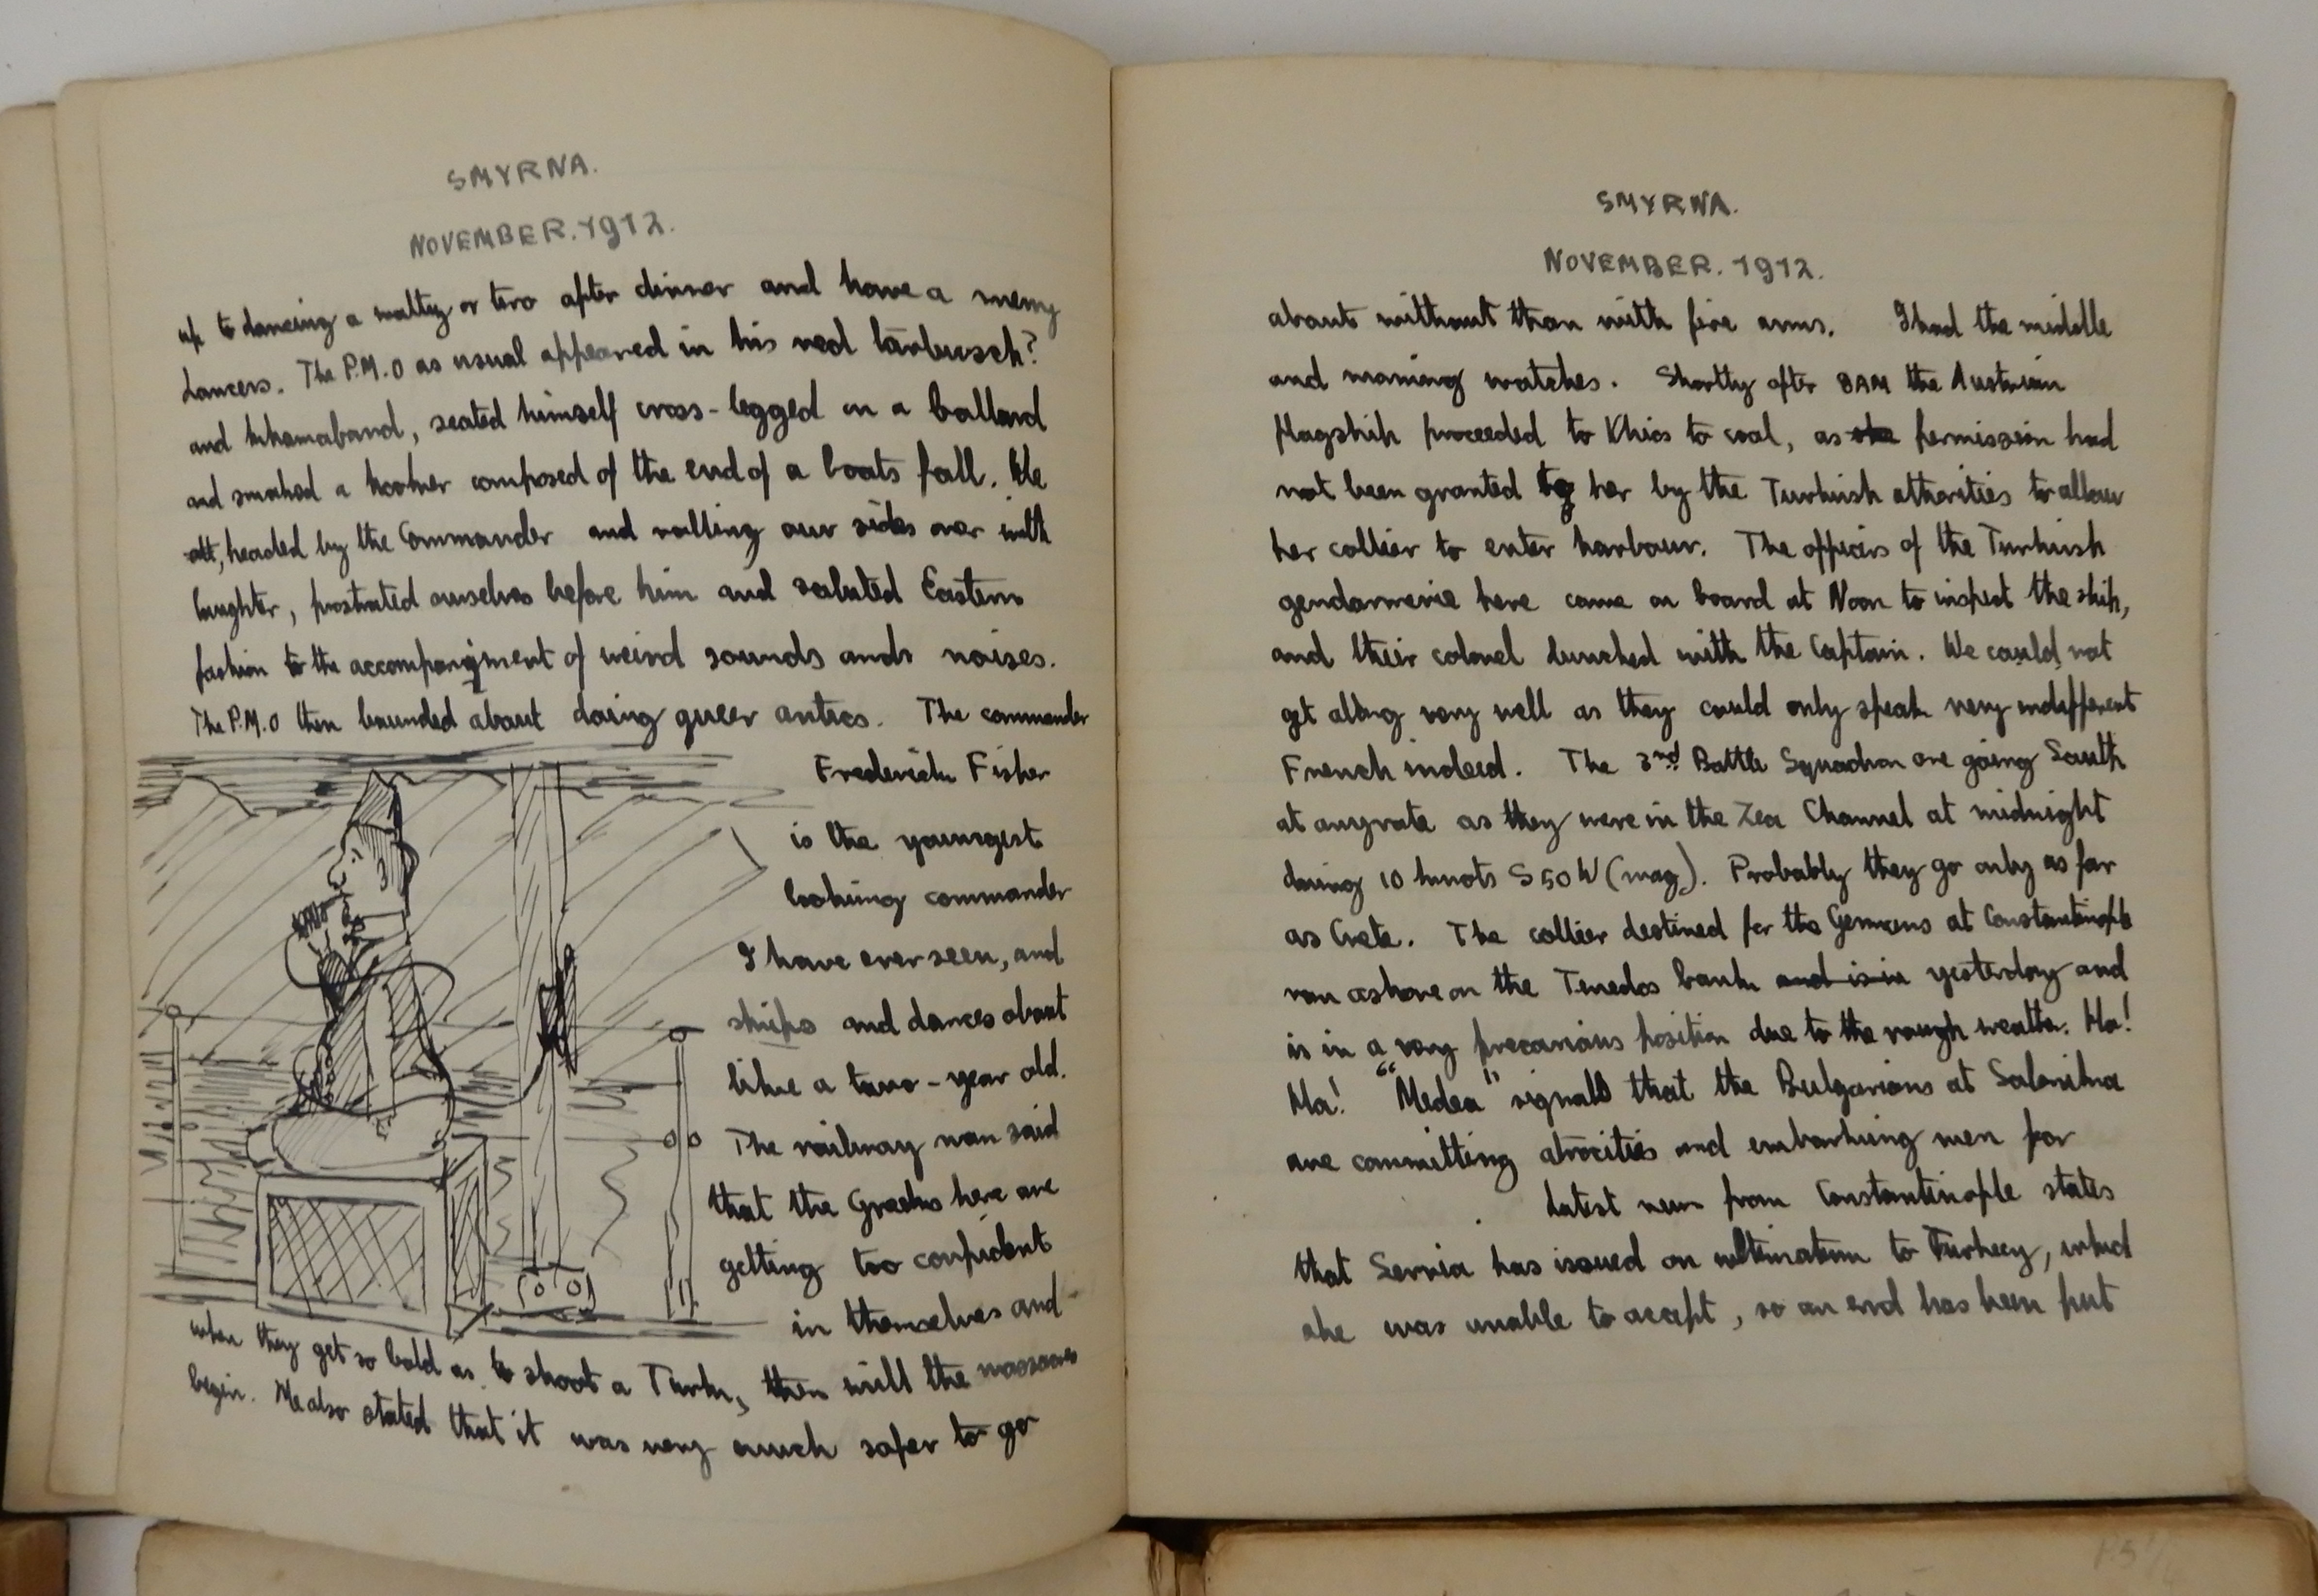 SMYRNA.
NOVEMBER. 1912.
up to dancing a waltz or two after dinner and have a merry
Lancers. The P.M.O as usual appeared in his red tarbusch?
and khamaband, seated himself cross-legged on a bollard
and smoked a hooker composed of the end of a boats fall. We
all, headed by the Commander and rolling our sides over with
laughter, prostrated ourselves before him and saluted Eastern
fashion to the accompanyment of weird sounds and noises.
The P.M.O then bounded about doing queer antics. The commander
Frederick Fisher
is the youngest
looking commander
I have ever seen, and
skips and dances about
like a two-year old.
The railway man said
that the Greeks here are
getting too confident
in themselves and
when they get so bold as to shoot a Turk, then will the massacres
begin. He also stated that it was very much safer to go
SMYRNA.
NOVEMBER. 1912.
about without than with fire arms. I had the middle
and morning watches. Shortly after 8AM the Austrian
flagship proceeded to Khios to coal, as she permission had
not been granted to her by the Turkish athorities to allow
her collier to enter harbour. The officers of the Turkish
gendarmerie here came on board at Noon to inspect the ship,
and their colonel lunched with the Captain. We could not
get along very well as they could only speak very indifferent
French indeed. The 3rd Battle Squadron are going South
at anyrate as they were in the Zea Channel at midnight
doing 10 knots S50W (mag). Probably they go only as far
as Crete. The collier destined for the Germans at Constantinople
ran ashore on the Tenedos bank and is in yesterday and
is in a very precarious position due to the rough weather. Ha!
Ha! "Medea" signals that the Bulgarians at Salonika
are committing atrocities and embarking men for
Latest news from Constantinople states
that Servia has issued an ultimatum to Turkey, which
she was unable to accept, so an end has been put